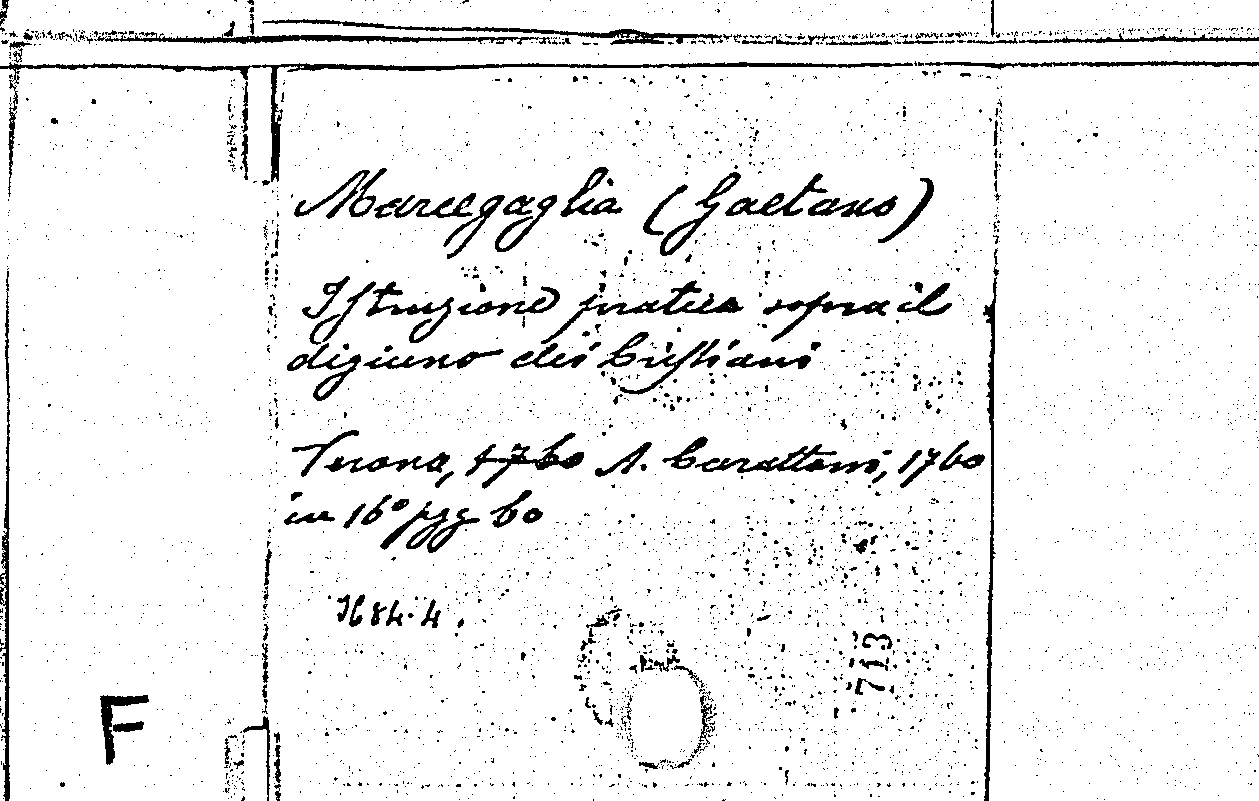 Marcegaglia (Gaetano)
Istruzione pratica sopra il
digiuno dei Cristiani
Verona, 1760 A. Carattoni, 1760
in 16° pgg 60
713
F